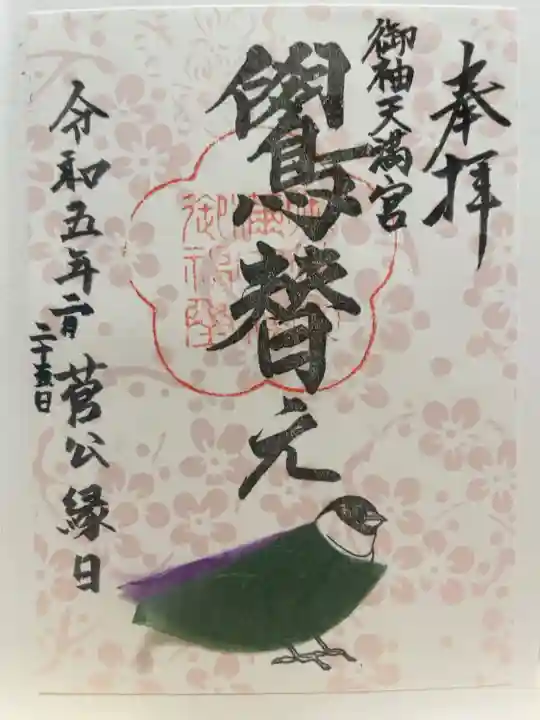 奉拝
御袖天満宮
鷽替え
令和五年二月
二十五日
菅公縁日